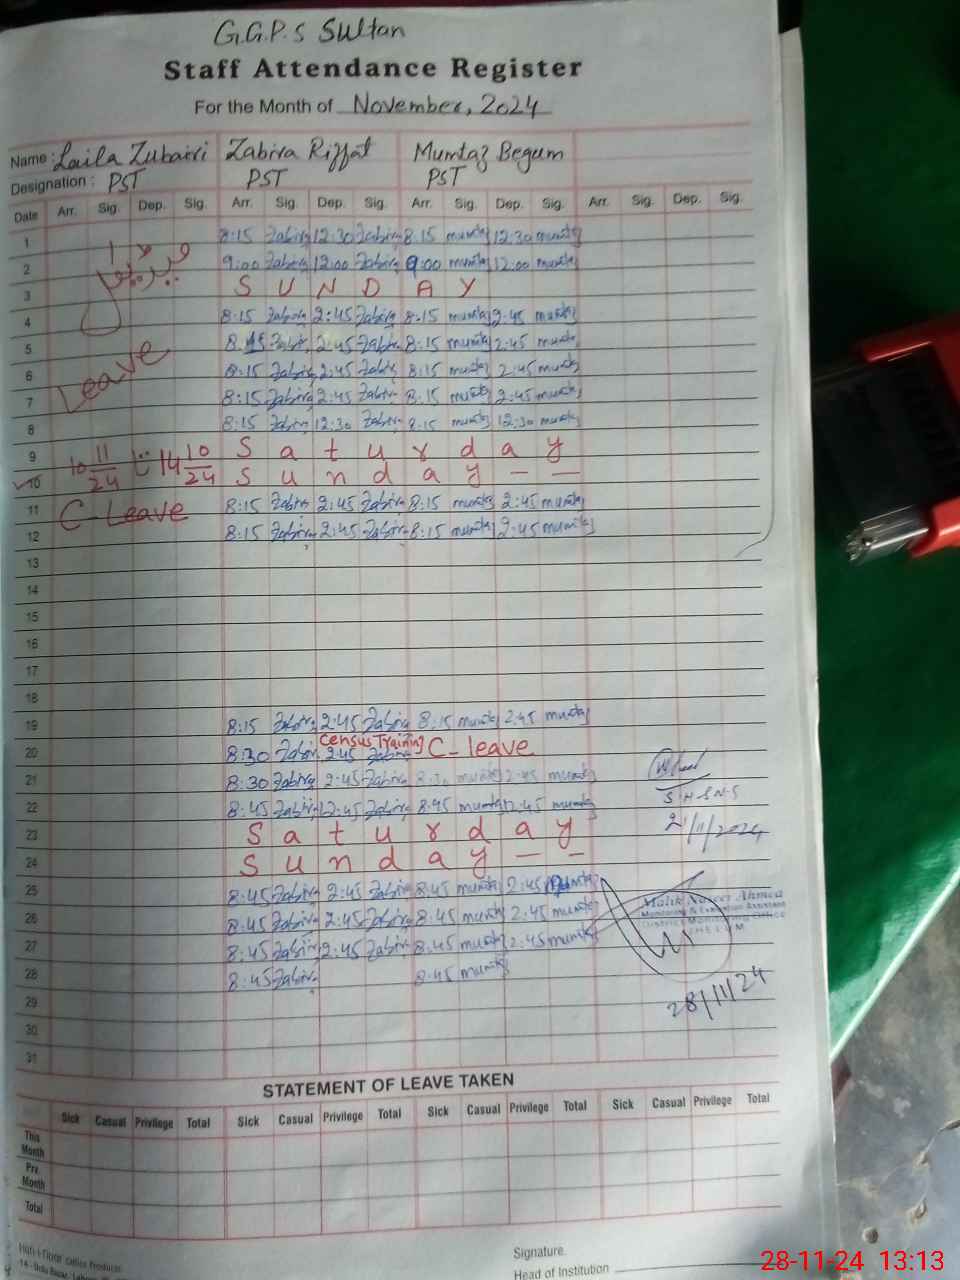 G.G.P.S Sultan
Staff Attendance Register
For the Month of November, 2024
Name : Laila Zubairi Zabira Riffat Mumtaz Begum
Designation : PST PST PST
Date Arr. Sig. Dep. Sig. Arr. Sig. Dep. Sig. Arr. Sig. Dep. Sig. Arr. Sig. Dep. Sig.
1 8:15 Zabira 12:30 Zabira 8:15 mumtaz 12:30 mumtaz
2 9:00 Zabira 12:00 Zabira 9:00 mumtaz 12:00 mumtaz
3 S U N D A Y
4 8:15 Zabira 2:45 Zabira 8:15 mumtaz 2:45 mumtaz
5 8:15 Zabira 2:45 Zabira 8:15 mumtaz 2:45 mumtaz
Leave
6 8:15 Zabira 2:45 Zabira 8:15 mumtaz 2:45 mumtaz
7 8:15 Zabira 2:45 Zabira 8:15 mumtaz 2:45 mumtaz
8 8:15 Zabira 12:30 Zabira 8:15 mumtaz 12:30 mumtaz
9 10 11/24 14 10/24 S a t u r d a y
10 S u n d a y — —
11 C-Leave 8:15 Zabira 2:45 Zabira 8:15 mumtaz 2:45 mumtaz
12 8:15 Zabira 2:45 Zabira 8:15 mumtaz 2:45 mumtaz
13
14
15
16
17
18
19 8:15 Zabira 2:45 Zabira 8:15 mumtaz 2:45 mumtaz
Census Training
20 8:30 Zabira 2:45 Zabira C-leave
21 8:30 Zabira 2:45 Zabira 8:30 mumtaz 2:45 mumtaz
22 8:45 Zabira 12:45 Zabira 8:45 mumtaz 12:45 mumtaz
23 S a t u r d a y
21/11/2024
24 S u n d a y — —
25 8:45 Zabira 2:45 Zabira 8:45 mumtaz 2:45 mumtaz
Malik Naveer Ahmed
Monitoring & Evaluation Assistant
District Monitoring Office
JHELUM
26 8:45 Zabira 2:45 Zabira 8:45 mumtaz 2:45 mumtaz
27 8:45 Zabira 2:45 Zabira 8:45 mumtaz 2:45 mumtaz
28 8:45 Zabira 8:45 mumtaz
28/11/24
29
30
31
STATEMENT OF LEAVE TAKEN
Sick Casual Privilege Total Sick Casual Privilege Total Sick Casual Privilege Total Sick Casual Privilege Total
This Month
Prv. Month
Total
Signature.
Head of Institution
28-11-24 13:13